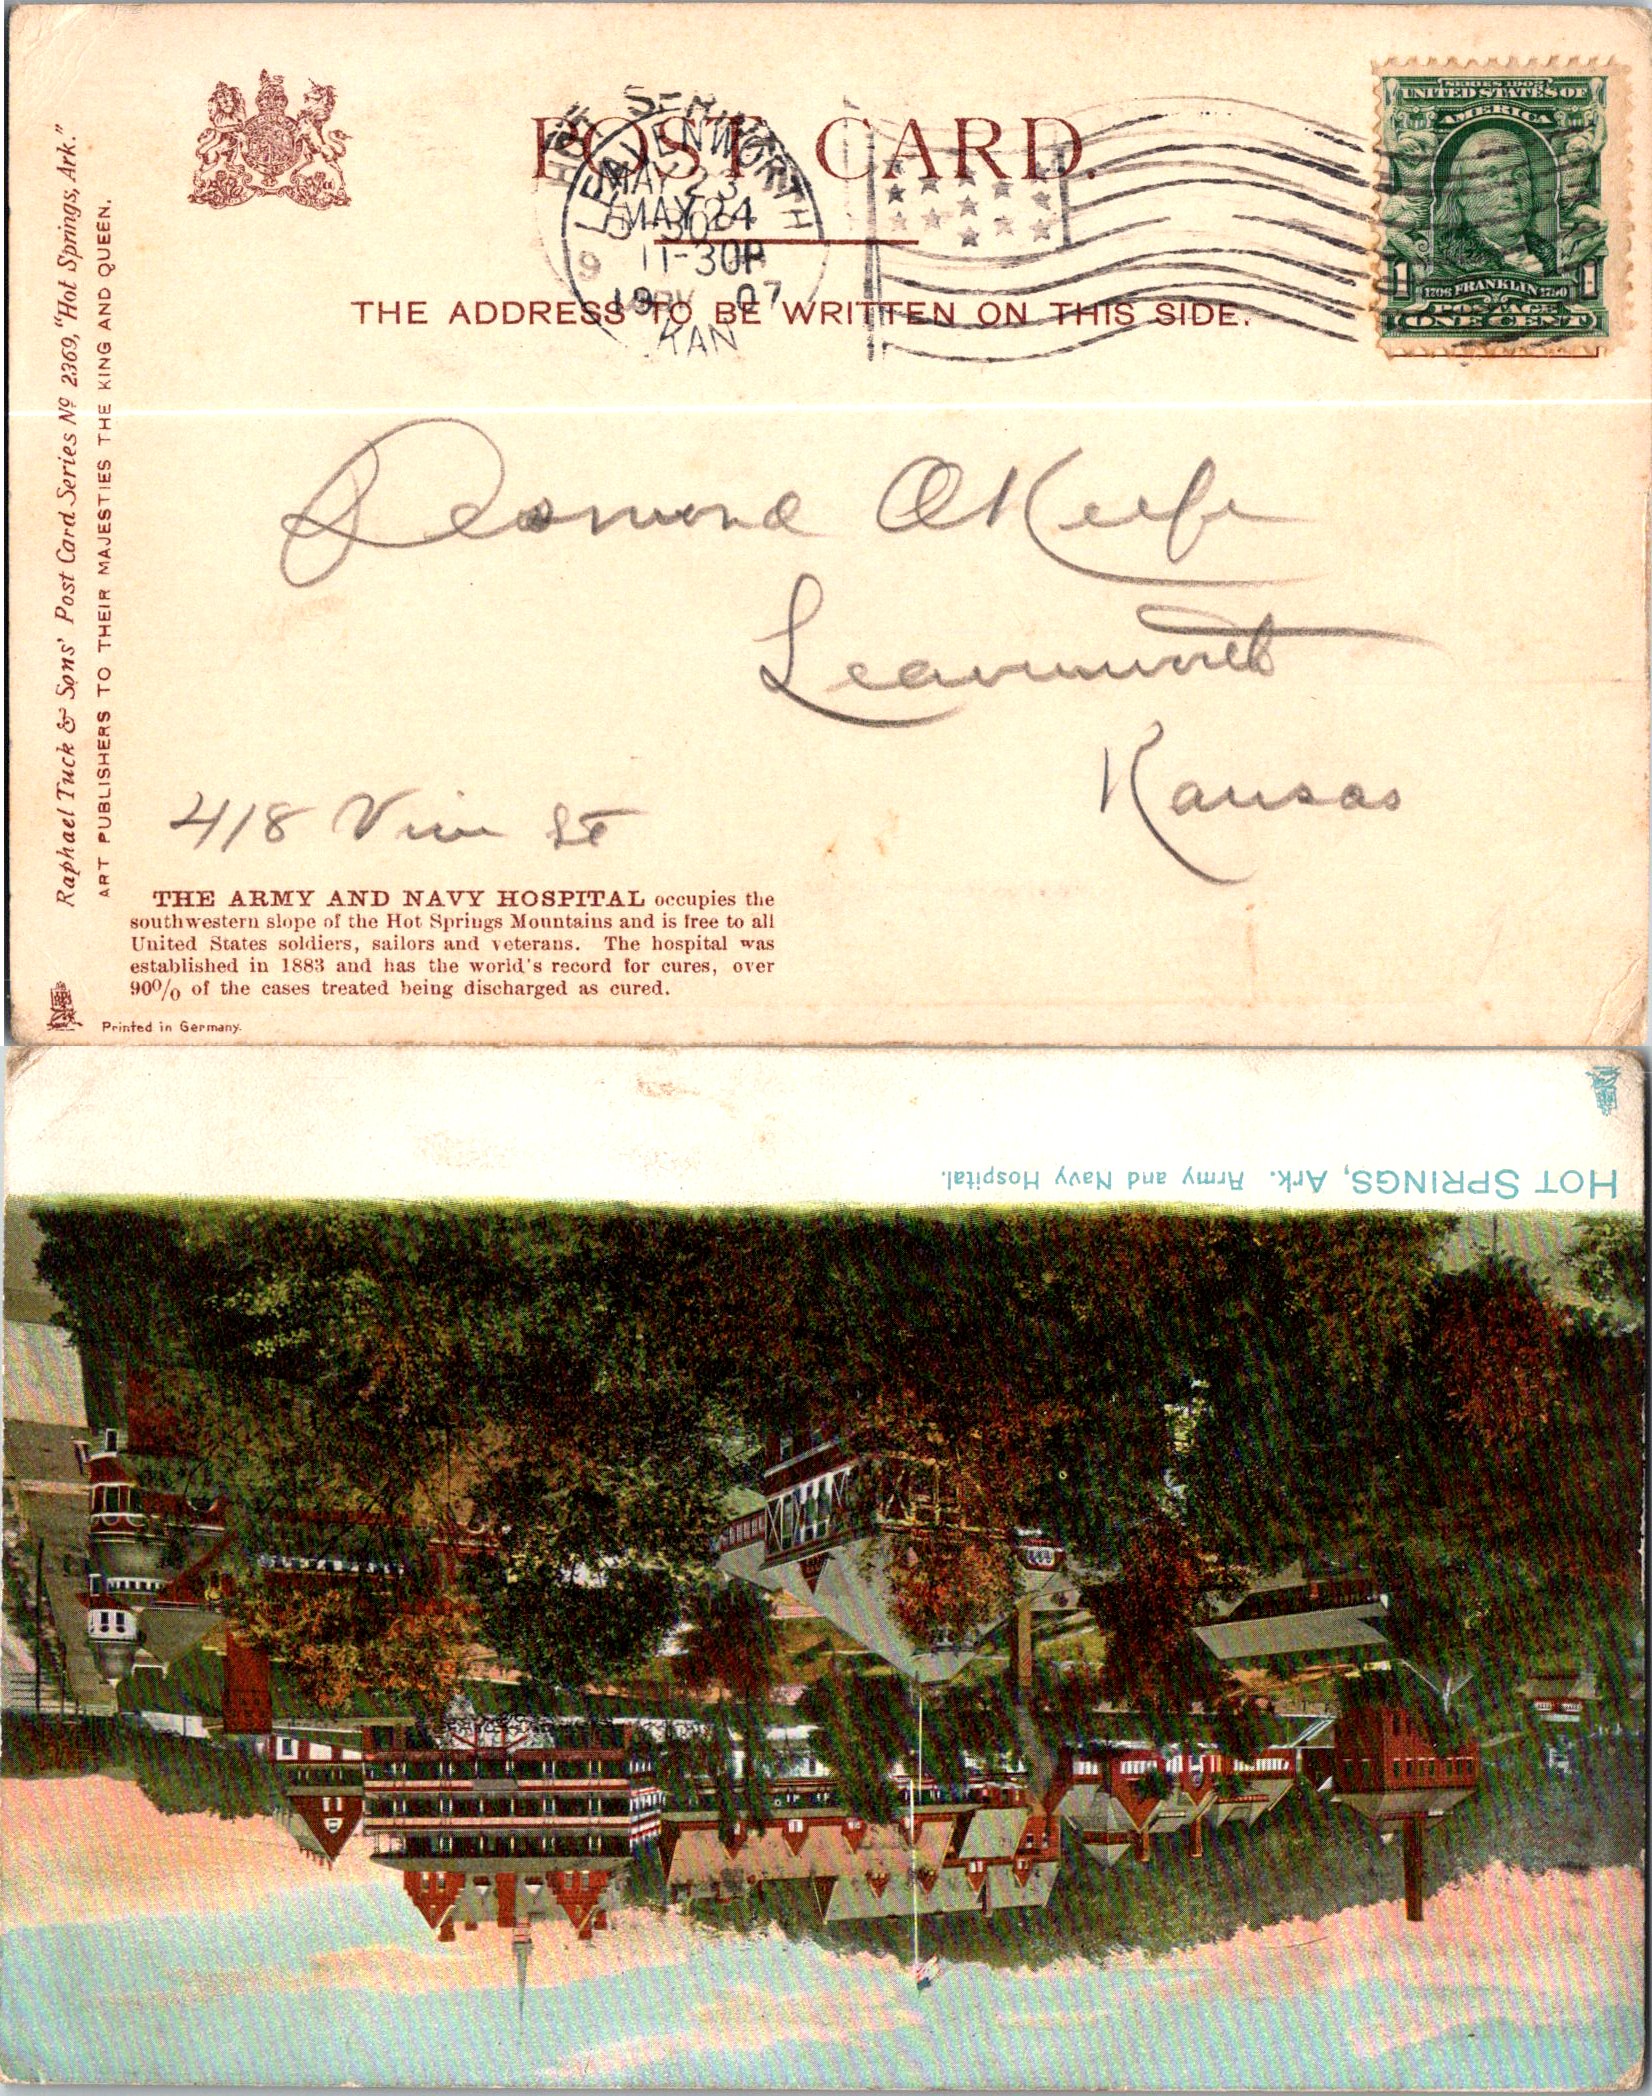 POST CARD.
THE ADDRESS TO BE WRITTEN ON THIS SIDE.
LEAVENWORTH
MAY 23
MAY 24
11-30P
1907
KAN
SERIES 1902
UNITED STATES OF
AMERICA
1 1
1706 FRANKLIN 1790
POSTAGE
ONE CENT
Raphael Tuck & Sons' Post Card Series Nº 2369, "Hot Springs, Ark."
ART PUBLISHERS TO THEIR MAJESTIES THE KING AND QUEEN.
Desmond O'Keefe
Leavenworth
Kansas
418 Vine St
THE ARMY AND NAVY HOSPITAL occupies the
southwestern slope of the Hot Springs Mountains and is free to all
United States soldiers, sailors and veterans. The hospital was
established in 1883 and has the world's record for cures, over
90% of the cases treated being discharged as cured.
Printed in Germany.
HOT SPRINGS, Ark. Army and Navy Hospital.